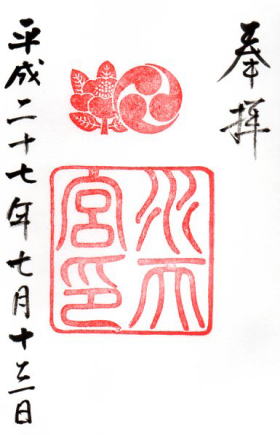 奉拝
水天宮印
平成二十七年七月十三日